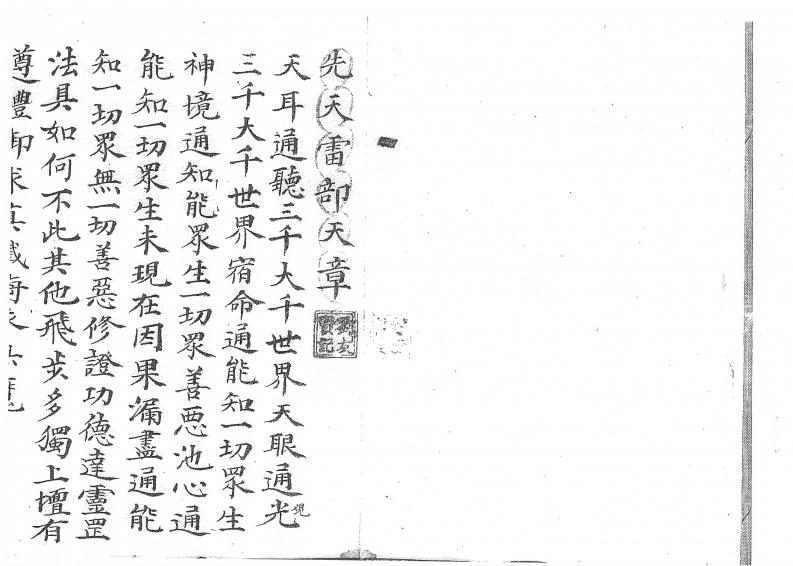 先天雷部天章
天耳通聽三千大千世界天眼通光
三千大千世界宿命通能知一切眾生
神境通知能眾生一切眾善惡池心通
能知一切眾生未現在因果漏盡通能
知一切眾無一切善惡修證功德達靈罡
法具如何不此其他飛步多獨上壇有